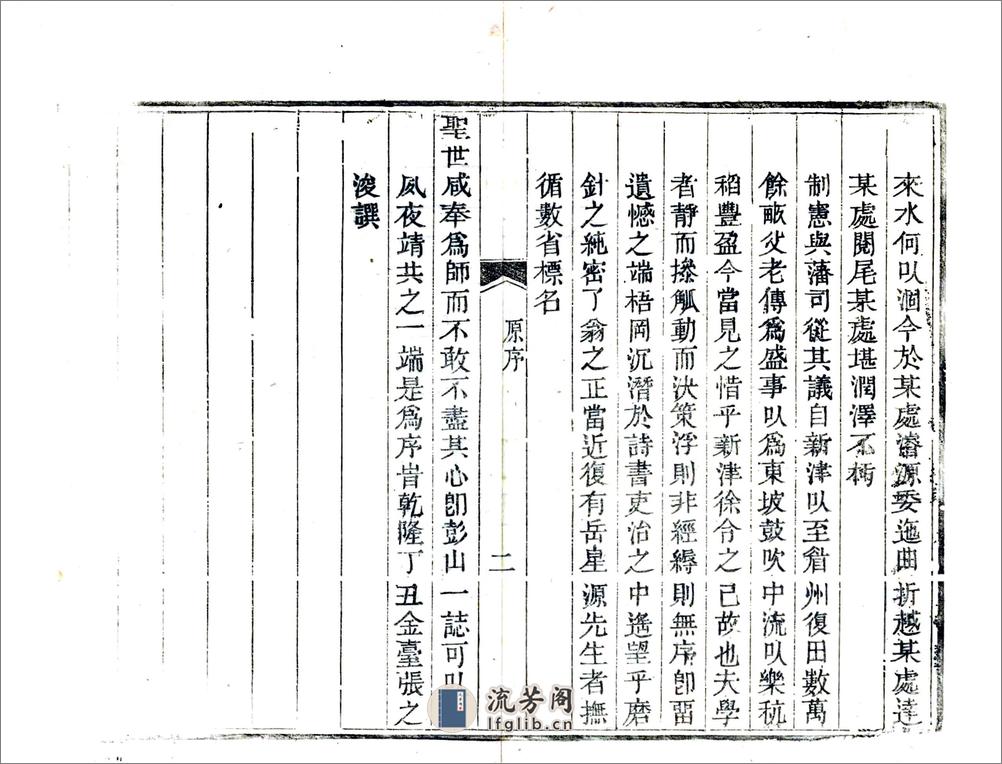 來水何以涸今於某處濬源委迤曲折越某處達
某處閼尾某處堪潤澤不朽
制憲與藩司從其議自新津以至眉州復田數萬
餘畝父老傳爲盛事以爲東坡鼓吹中流以樂秔
稻豐盈今當見之惜乎新津徐令之已故也夫學
者靜而摻觚動而決策浮則非經縟則無序卽畱
遺憾之端梧岡沉潛於詩書吏治之中遙望乎磨
針之純密了翁之正當近復有岳星源先生者撫
循數省標名
原序
二
聖世咸奉爲師而不敢不盡其心卽彭山一誌可以
夙夜靖共之一端是爲序旹乾隆丁丑金臺張之
浚譔
流芳阁
lfglib.cn